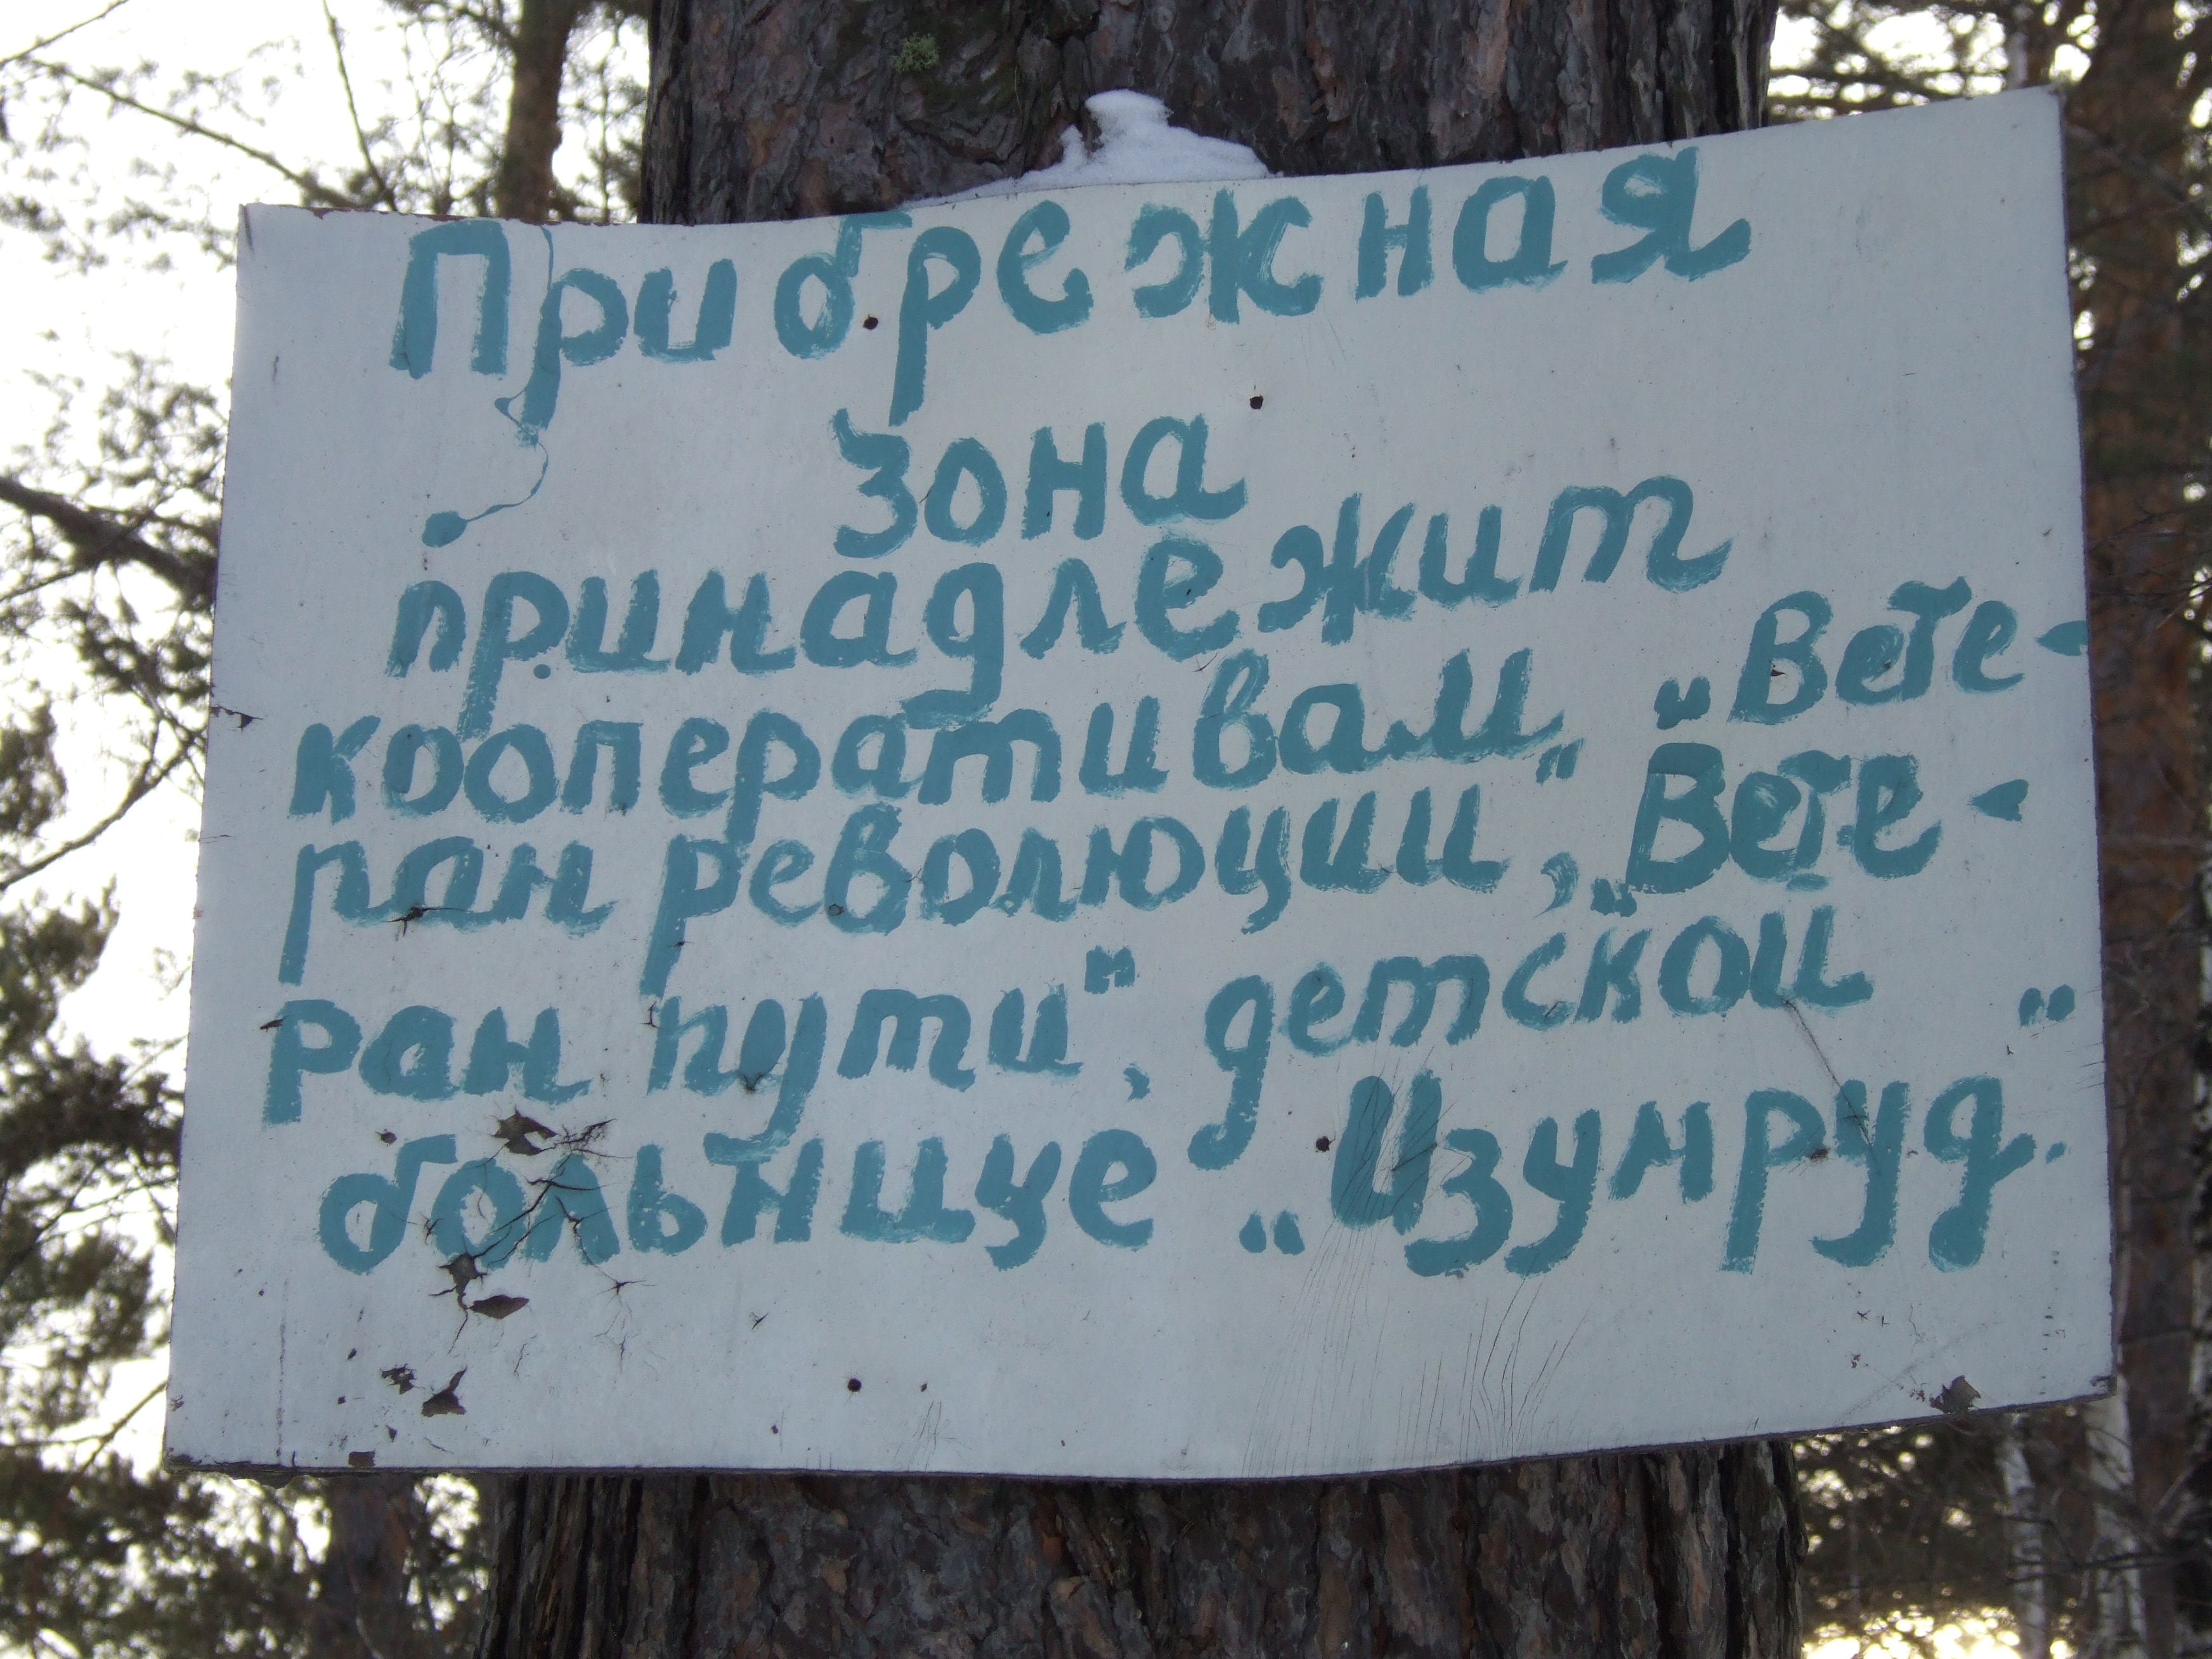 Прибрежная
зона
принадлежит
кооперативам „Вете-
ран революции", „Вете-
ран пути", детской
больнице „Изумруд".